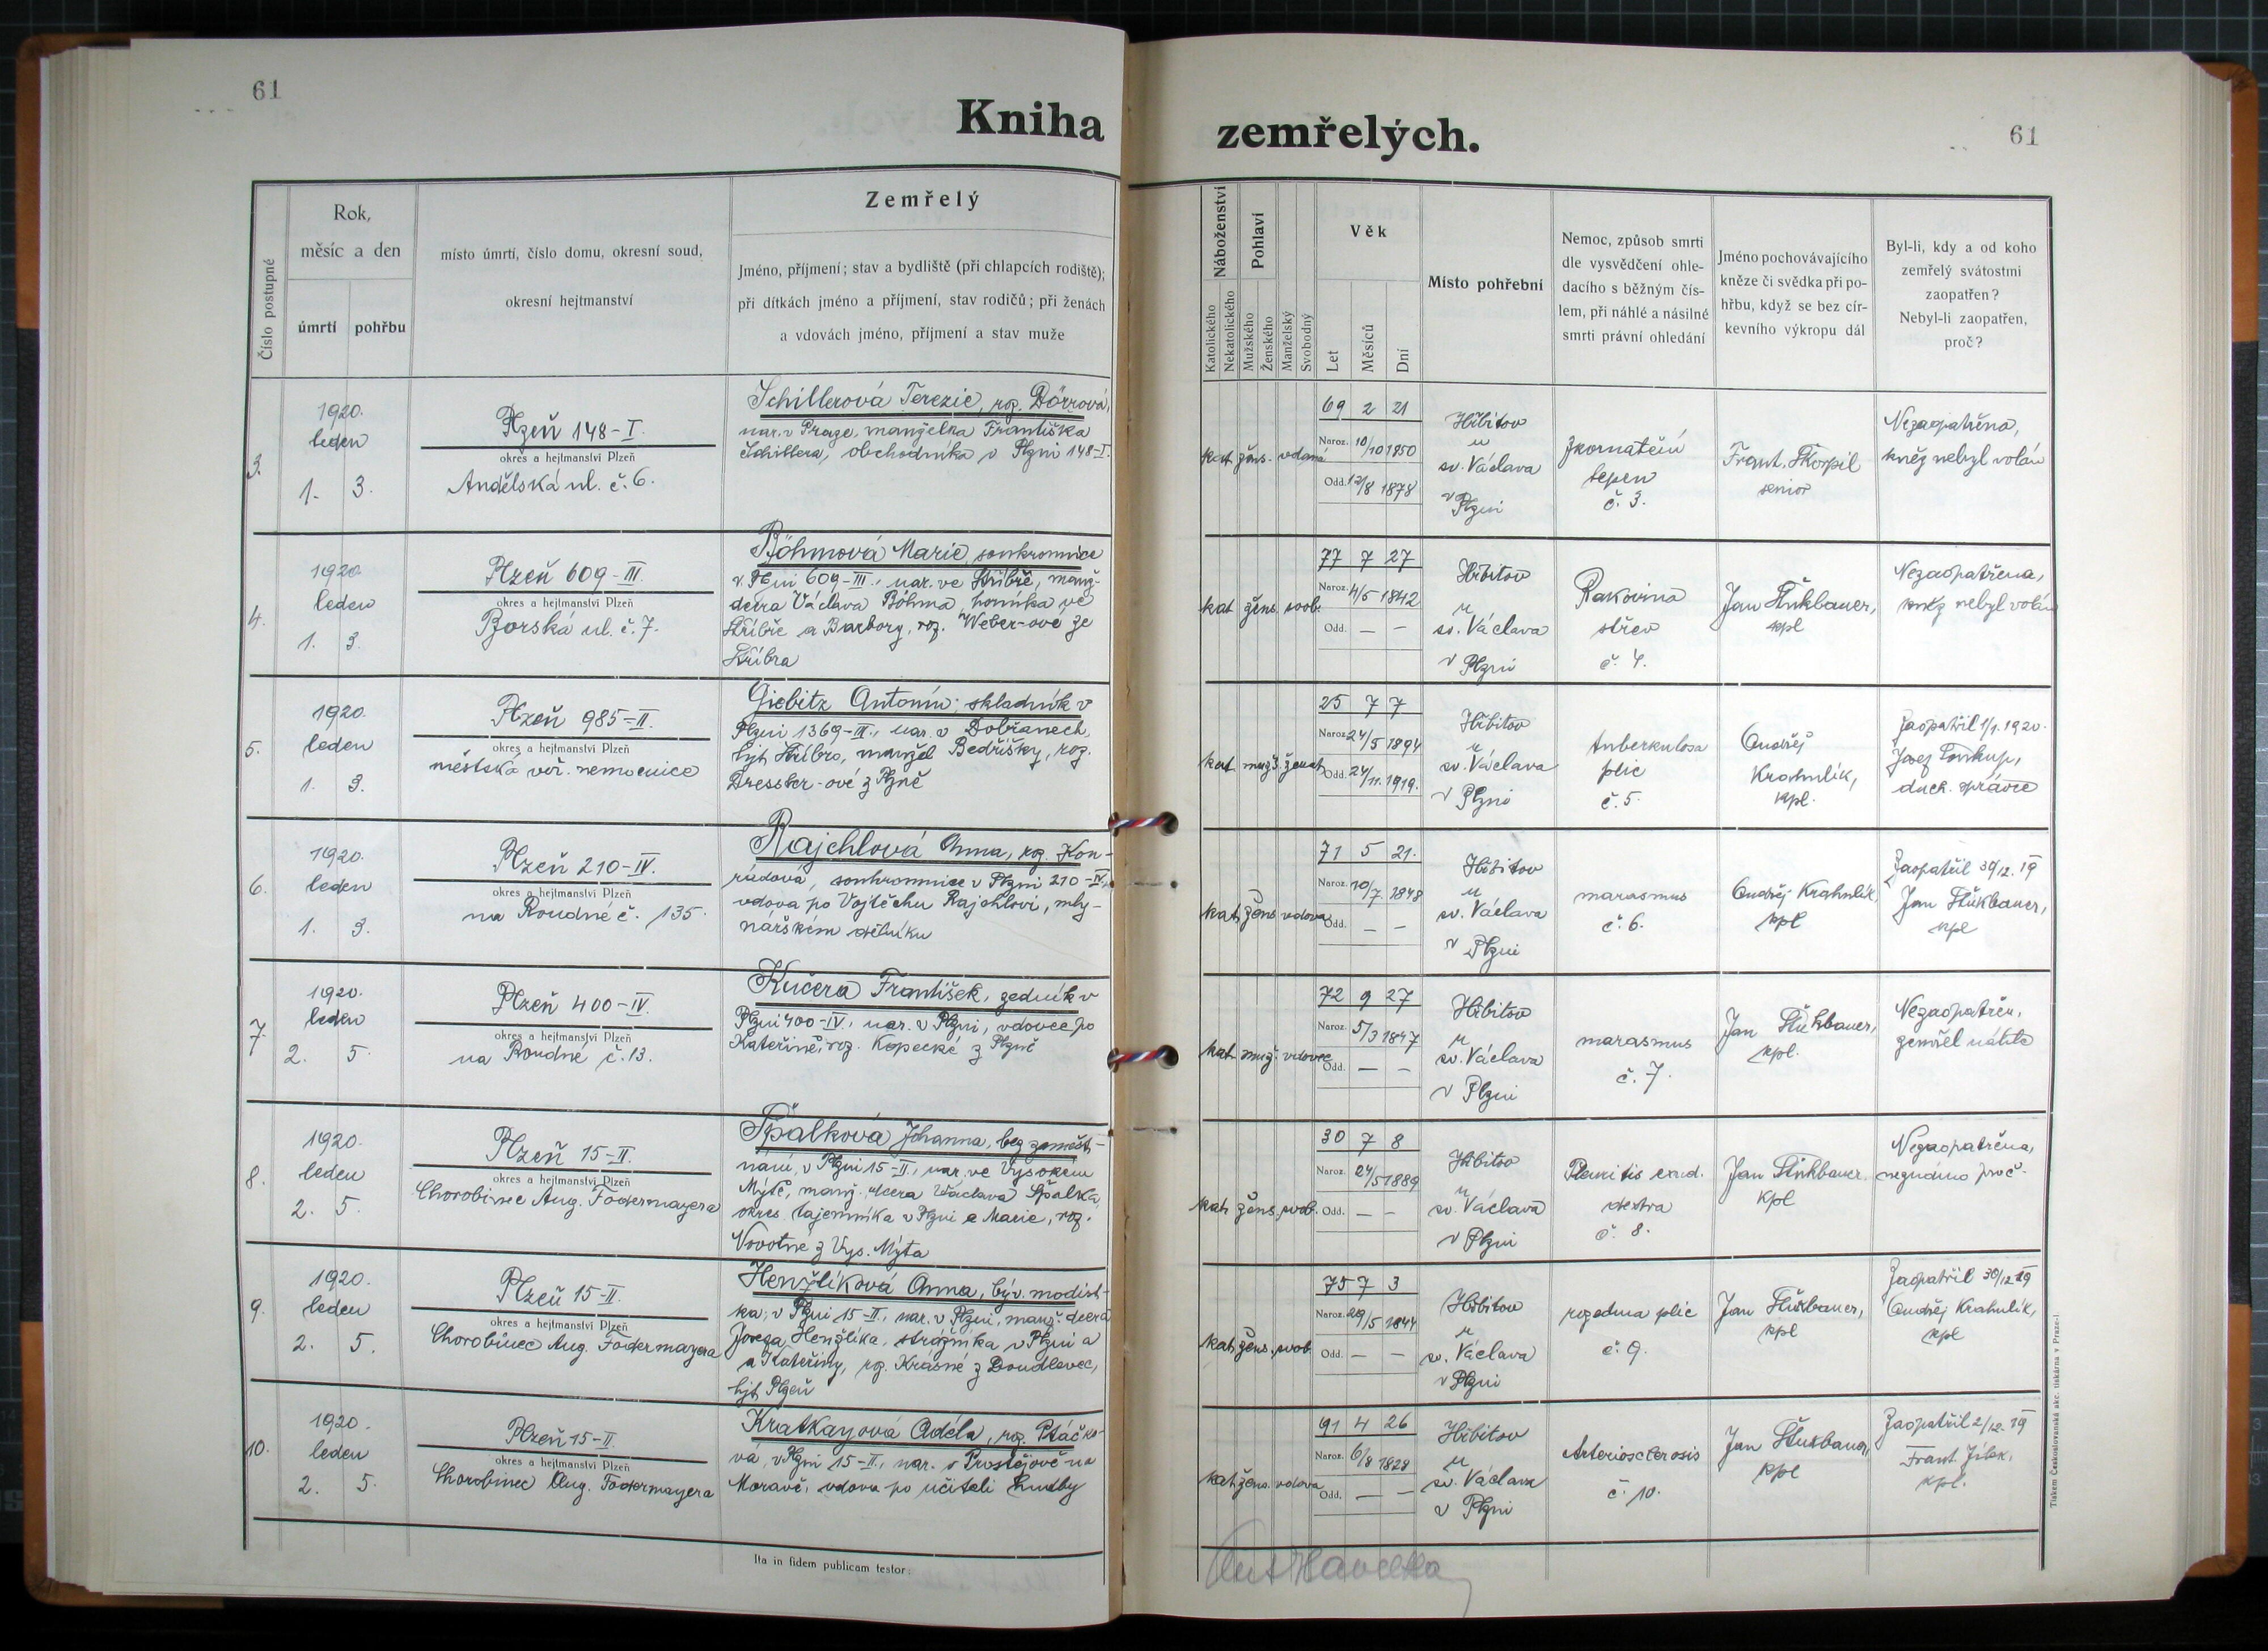 61
Kniha
zemřelých.
61
Číslo postupné
Rok,
měsíc a den
úmrtí
pohřbu
místo úmrtí, číslo domu, okresní soud,
okresní hejtmanství
Zemřelý
Jméno, příjmení; stav a bydliště (při chlapcích rodiště);
při dítkách jméno a příjmení, stav rodičů; při ženách
a vdovách jméno, příjmení a stav muže
Náboženství
Katolického
Nekatolického
Pohlaví
Mužského
Ženského
Manželský
Svobodný
Věk
Let
Měsíců
Dní
Místo pohřební
Nemoc, způsob smrti
dle vysvědčení ohle-
dacího s běžným čís-
lem, při náhlé a násilné
smrti právní ohledání
Jméno pochovávajícího
kněze či svědka při po-
hřbu, když se bez cír-
kevního výkropu dál
Byl-li, kdy a od koho
zemřelý svátostmi
zaopatřen?
Nebyl-li zaopatřen,
proč?
3.
1920.
leden
1. 3.
Plzeň 148-I.
okres a hejtmanství Plzeň
Andělská ul. č. 6.
Schillerová Terezie, roz. Dörrová,
nar. v Praze, manželka Františka
Schillera, obchodníka v Plzni 148-I.
kat. žens. vdaná
69 2 21
Naroz. 10/10 1850
Odd. 12/8 1878
Hřbitov
u
sv. Václava
v
Plzni
Zkornatění
tepen
č. 3.
Frant. Škorpil
senior
Nezaopatřena,
kněz nebyl volán
4.
1920
leden
1. 3.
Plzeň 609-III.
okres a hejtmanství Plzeň
Borská ul. č. 7.
Böhmová Marie, soukromnice
v Plzni 609-III., nar. ve Stříbře, manž.
dcera Václava Böhma, horníka ve
Stříbře a Barbory, roz. Weber-ové ze
Stříbra
kat. žens. svob.
77 7 27
Naroz. 4/5 1842
Odd. — —
Hřbitov
u
sv. Václava
v Plzni
Rakovina
střev
č. 4.
Jan
kpl
Nezaopatřena,
kněz nebyl volán
5.
1920.
leden
1. 3.
Plzeň 985-II.
okres a hejtmanství Plzeň
městská veř. nemocnice
Giebitz Antonín; skladník v
Plzni 1369-III., nar. v Dobřanech,
hjt. Stříbro, manžel Bedřišky, roz.
Dressler-ové z Plzně
kat. muž. ženat
25 7 7
Naroz. 24/5 1894
Odd. 24/11. 1919.
Hřbitov
u
sv. Václava
v Plzni
tuberkulosa
plic
č. 5.
Ondřej
Krahulík,
kpl.
Zaopatřil 1/1. 1920.
Josef
duch. správce
6.
1920.
leden
1. 3.
Plzeň 210-IV.
okres a hejtmanství Plzeň
na Roudné č. 135.
Rajchlová Anna, roz. Kon-
rádová, soukromnice v Plzni 210-IV.,
vdova po Vojtěchu Rajchlovi, mly-
nářském dělníku
kat. žens. vdova
71 5 21.
Naroz. 10/7 1848
Odd. — —
Hřbitov
u
sv. Václava
v Plzni
marasmus
č. 6.
Ondřej Krahulík,
kpl
Zaopatřil 30/12. 19
Jan
kpl
7.
1920.
leden
2. 5.
Plzeň 400-IV.
okres a hejtmanství Plzeň
na Roudné č. 13.
Kučera František, zedník v
Plzni 400-IV., nar. v Plzni, vdovec po
Kateřině, roz. Kopecké z Plzně
kat. muž. vdovec
72 9 27
Naroz. 5/3 1847
Odd. — —
Hřbitov
u
sv. Václava
v Plzni
marasmus
č. 7.
Jan
kpl.
Nezaopatřen,
zemřel náhle
8.
1920.
leden
2. 5.
Plzeň 15-II.
okres a hejtmanství Plzeň
Chorobinec Aug. Fodermayera
Špalková Johanna, bez zaměst-
nání, v Plzni 15-II., nar. ve Vysokém
Mýtě, manž. dcera Václava Špalka,
okres. tajemníka v Plzni a Marie, roz.
Novotné z Vys. Mýta
kat. žens. svob.
30 7 8
Naroz. 24/5 1889
Odd. — —
Hřbitov
u
sv. Václava
v Plzni
Pleuritis exud.
dextra
č. 8.
Jan
kpl
Nezaopatřena,
neznámo proč.
9.
1920.
leden
2. 5.
Plzeň 15-II.
okres a hejtmanství Plzeň
Chorobinec Aug. Fodermayera
Henžlíková Anna, býv. modist-
ka, v Plzni 15-II., nar. v Plzni, manž. dcera
Josefa Henžlíka, strážníka v Plzni a
a Kateřiny, roz. Krásné z Doudlevec,
hjt. Plzeň
kat. žens. svob.
75 7 3
Naroz. 29/5 1844
Odd. — —
Hřbitov
u
sv. Václava
v Plzni
rozedma plic
č. 9.
Jan
kpl
Zaopatřil 30/12 19
Ondřej Krahulík,
kpl
10.
1920.
leden
2. 5.
Plzeň 15-II.
okres a hejtmanství Plzeň
Chorobinec Aug. Fodermayera
Kratkayová Adéla, roz. Ptáčko-
vá, v Plzni 15-II., nar. v Prostějově na
Moravě, vdova po učiteli hudby
kat. žens. vdova
91 4 26
Naroz. 6/8 1828
Odd. — —
Hřbitov
u
sv. Václava
v Plzni
Arteriosclerosis
č. 10.
Jan
kpl
Zaopatřil 2/12. 19
Frant. Jílek,
kpl.
Ita in fidem publicam testor:
Ant. Havelka
Tiskem Československá akc. tiskárna v Praze-I.